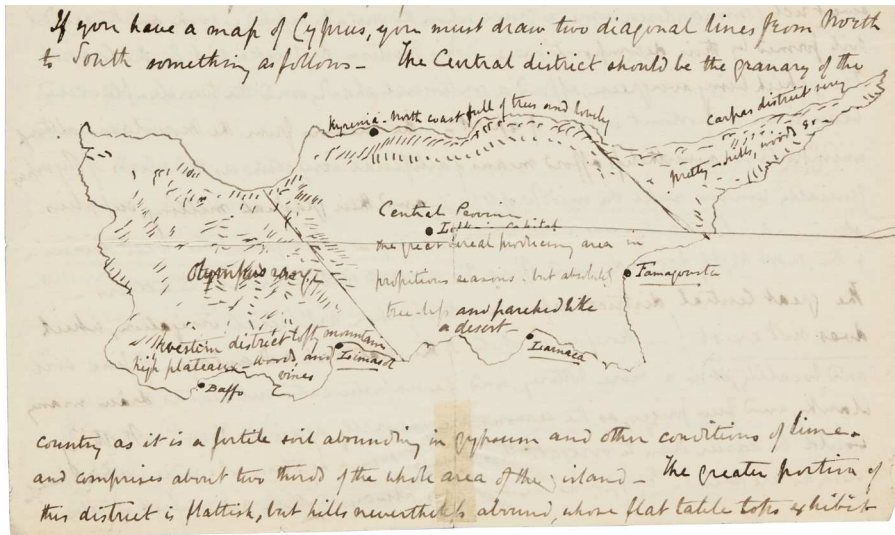 If you have a map of Cyprus, you must draw two diagonal lines from North
to South something as follows - The Central district should be the granary of the
Kyrenia - North coast full of trees and lovely
carpas district very
pretty - hills, woods &c
Central Province
Capital
the great cereal producing area in
propitious seasons - but absolutely
tree-less and parched like
a desert -
Famagousta
Olympus range
western district lofty mountain
high plateaux - woods, and
vines
Limasol
Larnaca
Baffo
country as it is a fertile soil abounding in gypsum and other conditions of lime -
and comprises about two thirds of the whole area of the island - The greater portion of
this district is flattish, but hills nevertheless abound, whose flat table tops exhibit